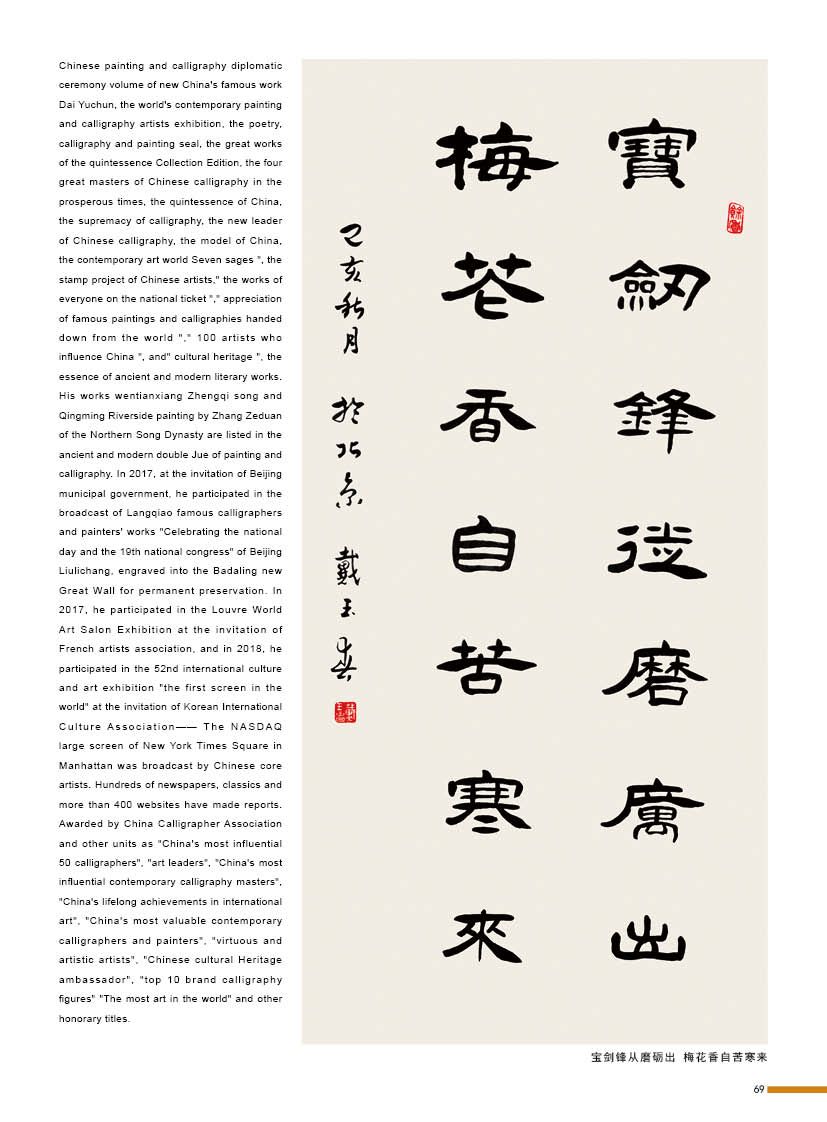 Chinese painting and calligraphy diplomatic
ceremony volume of new China's famous work
Dai Yuchun, the world's contemporary painting
and calligraphy artists exhibition, the poetry,
calligraphy and painting seal, the great works
of the quintessence Collection Edition, the four
great masters of Chinese calligraphy in the
prosperous times, the quintessence of China,
the supremacy of calligraphy, the new leader
of Chinese calligraphy, the model of China,
the contemporary art world Seven sages ", the
stamp project of Chinese artists," the works of
everyone on the national ticket "," appreciation
of famous paintings and calligraphies handed
down from the world "," 100 artists who
influence China ", and" cultural heritage ", the
essence of ancient and modern literary works.
His works wentianxiang Zhengqi song and
Qingming Riverside painting by Zhang Zeduan
of the Northern Song Dynasty are listed in the
ancient and modern double Jue of painting and
calligraphy. In 2017, at the invitation of Beijing
municipal government, he participated in the
broadcast of Langqiao famous calligraphers
and painters' works "Celebrating the national
day and the 19th national congress" of Beijing
Liulichang, engraved into the Badaling new
Great Wall for permanent preservation. In
2017, he participated in the Louvre World
Art Salon Exhibition at the invitation of
French artists association, and in 2018, he
participated in the 52nd international culture
and art exhibition "the first screen in the
world" at the invitation of Korean International
Culture Association—— The NASDAQ
large screen of New York Times Square in
Manhattan was broadcast by Chinese core
artists. Hundreds of newspapers, classics and
more than 400 websites have made reports.
Awarded by China Calligrapher Association
and other units as "China's most influential
50 calligraphers", "art leaders", "China's most
influential contemporary calligraphy masters",
"China's lifelong achievements in international
art", "China's most valuable contemporary
calligraphers and painters", "virtuous and
artistic artists", "Chinese cultural Heritage
ambassador", "top 10 brand calligraphy
figures" "The most art in the world" and other
honorary titles.
寶劒鋒從磨厲出
梅花香自苦寒來
己亥秋月 於北京 戴玉春
宝剑锋从磨砺出 梅花香自苦寒来
69